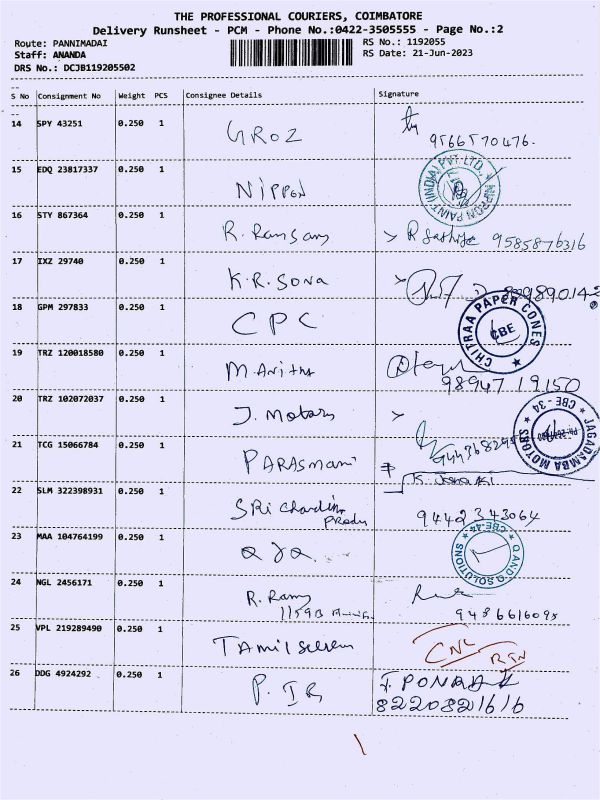 THE PROFESSIONAL COURIERS, COIMBATORE
Delivery Runsheet - PCM - Phone No.:0422-3505555 - Page No.:2
Route: PANNIMADAI
RS No.: 1192055
Staff: ANANDA
RS Date: 21-Jun-2023
DRS No.: DCJB119205502
S No Consignment No Weight PCS Consignee Details Signature
14 SPY 43251 0.250 1 GROZ
9566570476.
15 EDQ 23817337 0.250 1 NIPPON
NIPPON PAINT (INDIA) PVT. LTD.
16 STY 867364 0.250 1 R. Ramsamy R Sathiya 9585876316
17 IXZ 29740 0.250 1 K.R. SONA
18 GPM 297833 0.250 1 CPC
CHITRAA PAPER CONES CBE
19 TRZ 120018580 0.250 1 M. Anitha
98947 19150
20 TRZ 102072037 0.250 1 J. Motors
JAGADAMBA MOTORS CBE - 34
21 TCG 15066784 0.250 1 PARASMANI
22 SLM 322398931 0.250 1 SRi
9442343064
23 MAA 104764199 0.250 1 Q I Q
Q AND Q SOLUTIONS CBE-44
24 NGL 2456171 0.250 1 R. Ramy
9436616095
25 VPL 219289490 0.250 1 TAmilselvam CNL
RTN
26 DDG 4924292 0.250 1 P. IR
8220821616